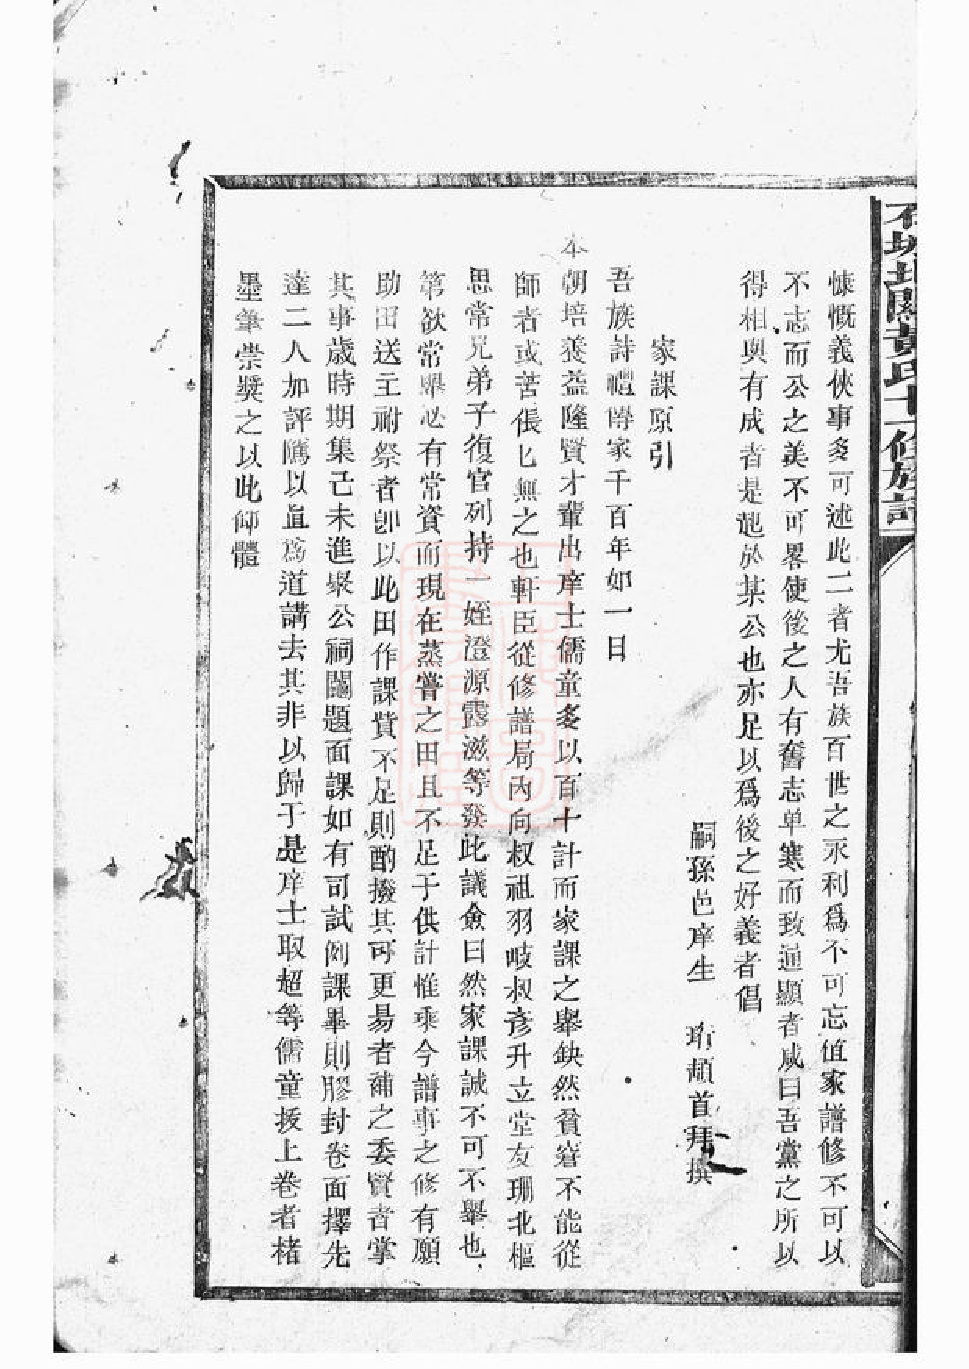 石城坊關黃氏十一修族譜
慷慨義俠事多可述此二者尤吾族百世之永利爲不可忘值家譜修不可以
不志而公之美不可畧使後之人有奮志单寒而致通顯者咸曰吾黨之所以
得相與有成者是起於某公也亦足以爲後之好義者倡
嗣孫邑庠生 珩頓首拜撰
家課原引
吾族詩禮傳家千百年如一日
本朝培養益隆賢才輩出庠士儒童多以百十計而家課之舉缺然貧窘不能從
師者或苦倀匕無之也軒臣從修譜局內向叔祖羽岐叔彥升立堂友珊北樞
思常兄弟子復官列持一姪澄源露滋等發此議僉曰然家課誠不可不舉也
第欲常舉必有常資而現在蒸嘗之田且不足于供計惟乘今譜事之修有願
助田送主祔祭者卽以此田作課費不足則酌撥其可更易者補之委賢者掌
其事歲時期集己未進聚公祠鬮題面課如有司試例課畢則膠封卷面擇先
達二人加評隲以眞爲道講去其非以歸于是庠士取超等儒童拔上卷者楮
墨筆崇獎之以此仰體